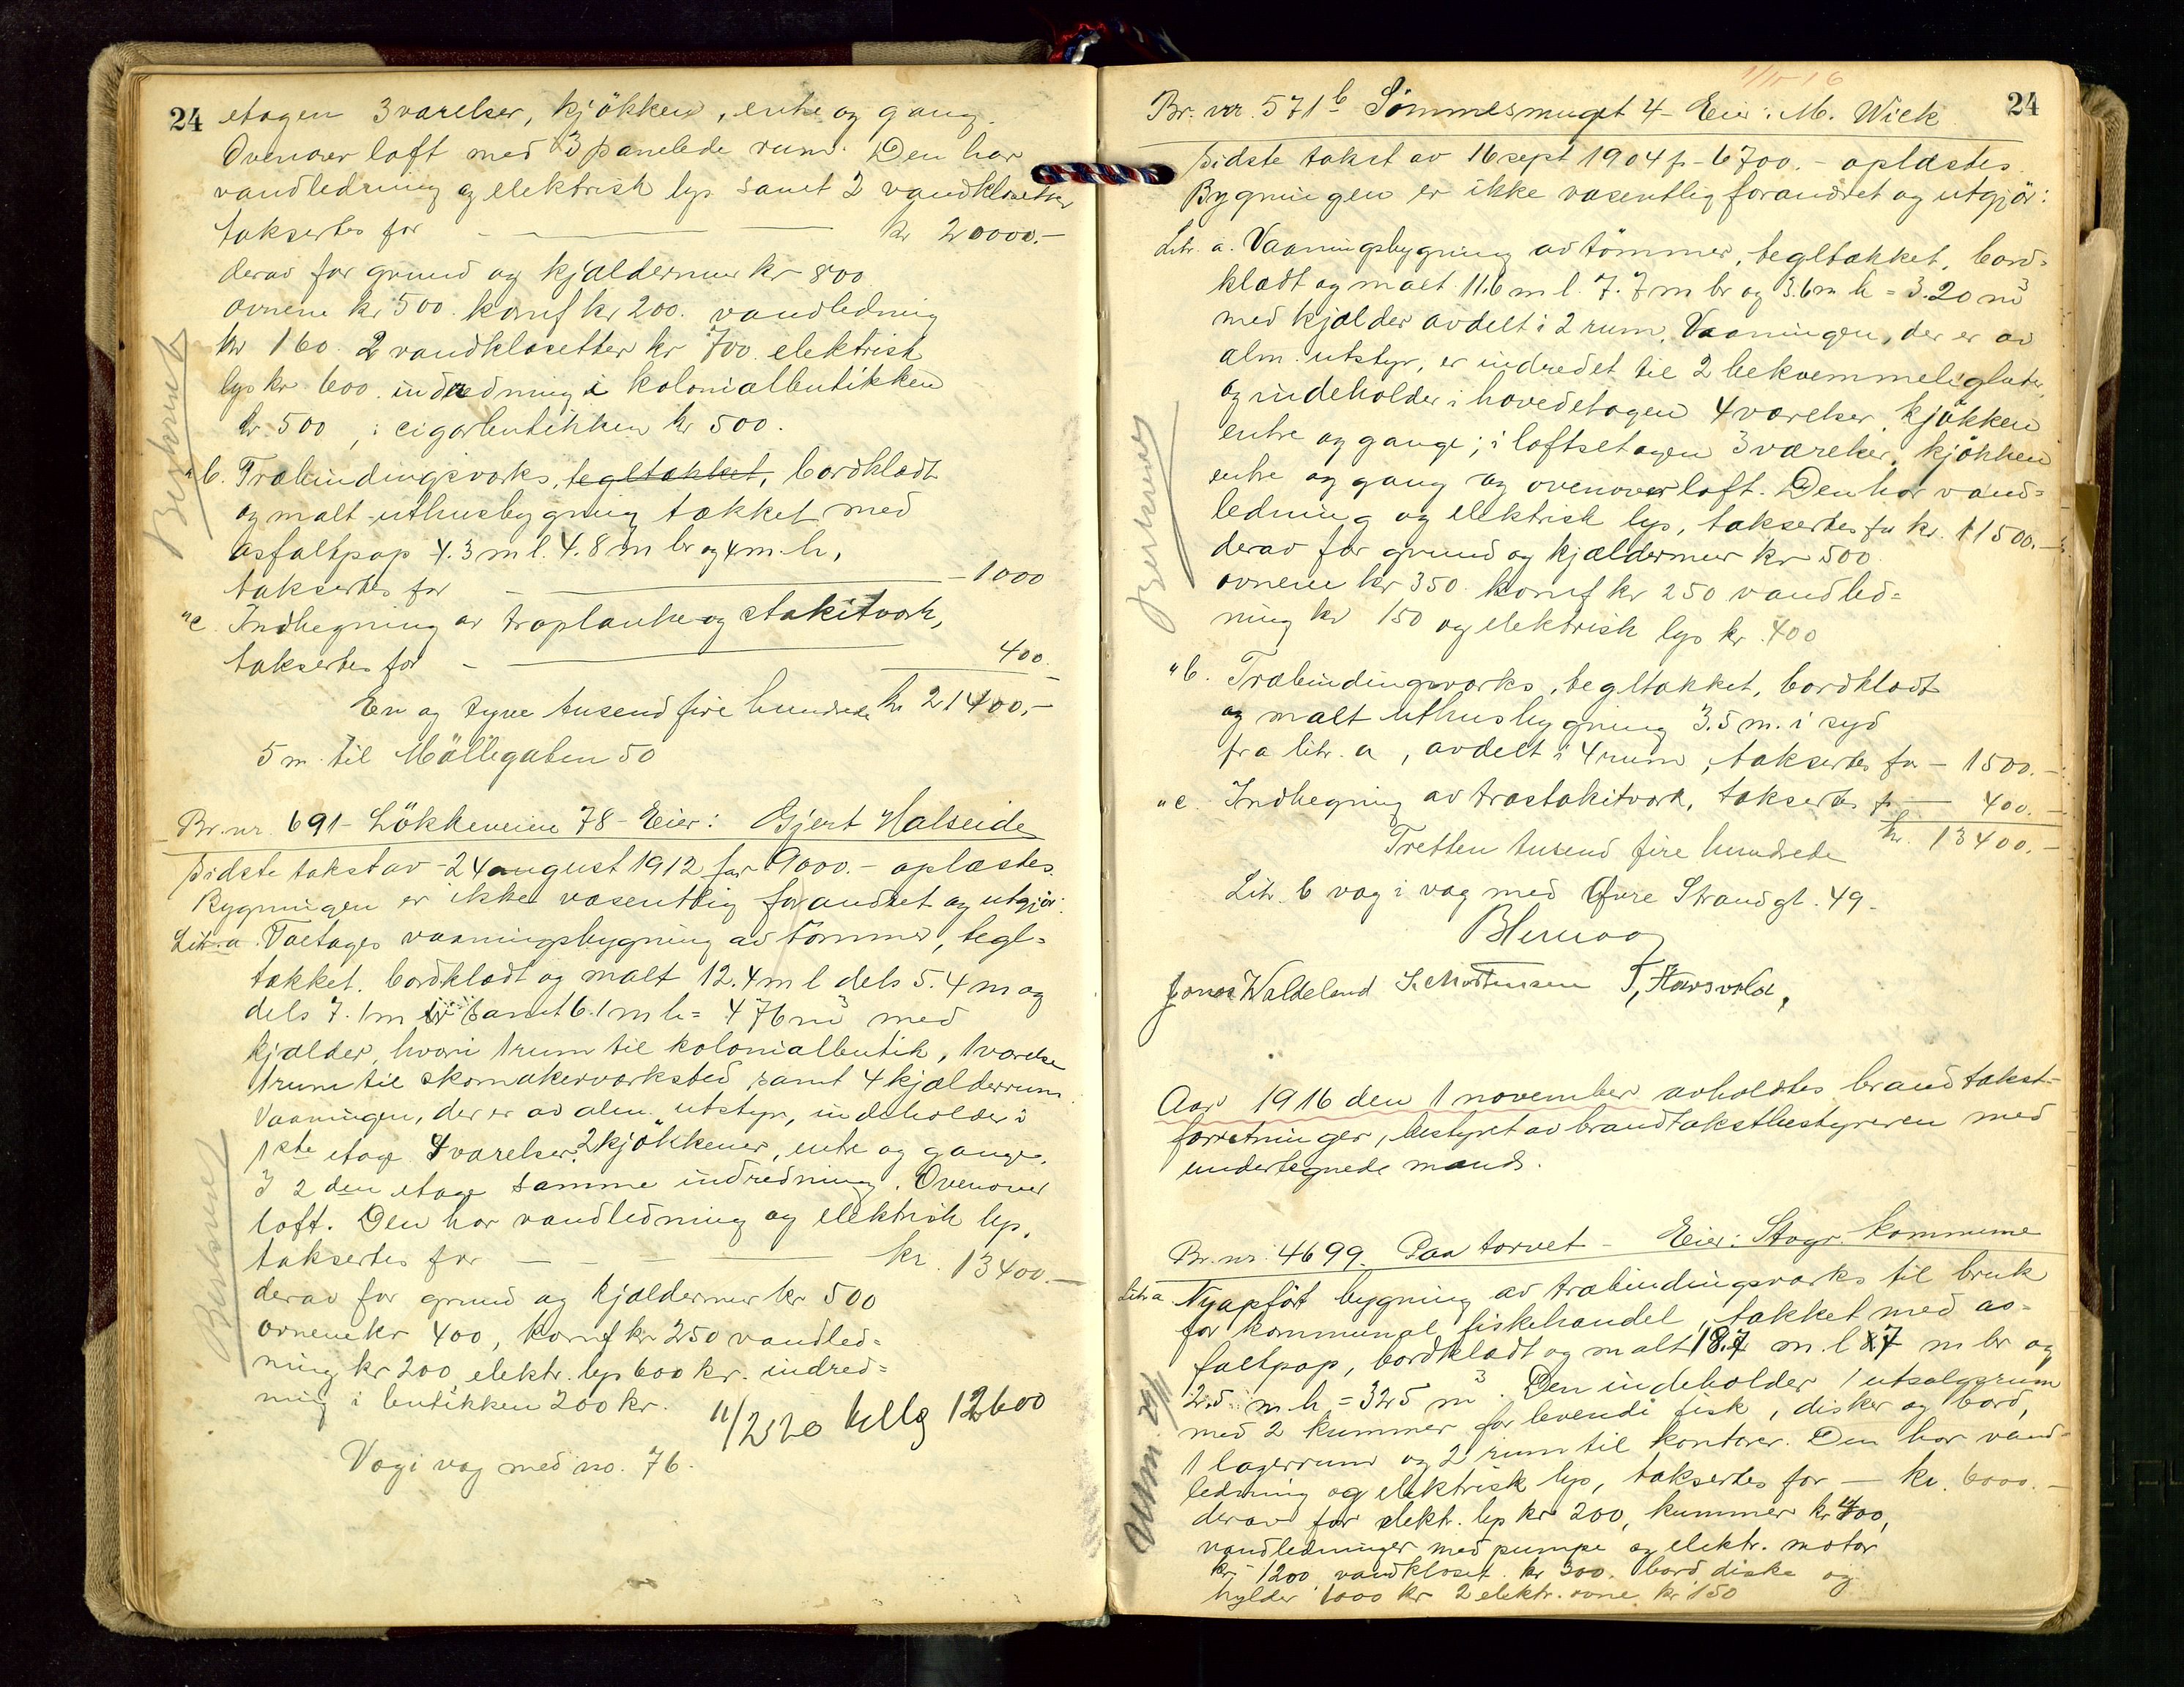 24
etagen 3 værelser, kjökken, entre og gang.
Ovenover loft med 3 panelede rum. Den har
vandledning og elektrisk lys samt 2 vandklosetter
taksertes for — kr 20000.-
derav for grund og kjældermur kr 800
ovnene kr 500. komf kr 200. vandledning
kr 160. 2 vandklosetter kr 700. elektrisk
lys kr 600. indredning i kolonialbutikken
kr. 500, i cigarbutikken kr 500.
" b. Træbindingsverks, tegltækket, bordklædt
og malt uthusbygning tækket med
asfaltpap 4.3 m l. 4.8 m br og 4 m. h,
taksertes for — 1000
" c. Indhegning av træplanke og stakitverk,
taksertes for — 400.-
En og tyve tusend fire hundrede kr 21400.-
5 m. til Möllegaten 50
Br. nr. 691 - Lökkeveien 78 - Eier: Gjert Halseide
Sidste takst av 24 august 1912 for 9000.- oplæstes.
Bygningen er ikke væsentlig forandret og utgjör:
Litr. a. Toetages vaaningsbygning av tömmer, tegl=
tækket. bordklædt og malt 12.4 m l dels 5.4 m og
dels 7.1 m br samt 6.1 m h = 476 m³ med
kjælder, hvori 1 rum til kolonialbutik, 1 værelse
1 rum til skomakerverksted samt 4 kjælderrum.
Vaaningen, der er av alm. utstyr, indeholder i
1ste etage 4 værelser, 2 kjökkener, entre og gange.
I 2den etage samme indredning. Ovenover
loft. Den har vandledning og elektrisk lys,
taksertes for — kr. 13400.-
derav for grund og kjældermur kr 500
ovnene kr 400, komf kr 250 vandled=
ning kr 200 elektr. lys 600 kr. indred=
ning i butikken 200 kr.
11/2 20 12600
Væg i væg med no. 76.
24
Br. nr. 571b Sömmesmuget 4 - Eier: M. Wiek
Sidste takst av 16 sept 1904 f - 6700.- oplæstes.
Bygningen er ikke væsentlig forandret og utgjör:
Litr. a. Vaaningsbygning av tömmer, tegltækket, bord=
klædt og malt 11.6 m l. 7.7 m br og 3.6 m h = 320 m³
med kjælder avdelt i 2 rum. Vaaningen, der er av
alm. utstyr, er indredet til 2 bekvemmeligheter
og indeholder i hovedetagen 4 værelser, kjökken
entre og gange; i loftsetagen 3 værelser, kjökken
entre og gang og ovenover loft. Den har vand=
ledning og elektrisk lys, taksertes for kr. 11500.-
derav for grund og kjældermur kr 500.
ovnene kr 350. komf kr 250 vandled=
ning kr 150 og elektrisk lys kr. 400
" b. Træbindingsverks, tegltækket, bordklædt
og malt uthusbygning 3.5 m. i syd
fra litr. a, avdelt i 4 rum, taksertes for - 1500.-
" c. Indhegning av træstakitverk, taksertes f — 400.-
kr. 13400.-
Tretten tusend fire hundrede
Litr. b væg i væg med Øvre Strandgt. 49.
Jonas Waldeland
Aar 1916 den 1 november avholdtes brandtakst-
forretninger, bestyret av brandtakstbestyreren med
undertegnede mænd.
Br. nr. 4699. Paa torvet - Eier: Stvgr. kommune
Litr. a. Nyopfört bygning av træbindingsverks til bruk
for kommunal fiskehandel, tækket med as-
faltpap, bordklædt og malt 18.7 m. l x 7 m br og
2.5 m. h = 325 m³. Den indeholder 1 utsalgsrum
med 2 kummer for levende fisk, disker og bord,
1 lagerrum og 2 rum til kontorer. Den har vand-
ledning og elektrisk lys, taksertes for — kr. 6000.-
derav for elektr. lys kr 200, kummer kr 400,
vandledninger med pumpe og elektr. motor
kr 1200 vandkloset kr 300. bord diske og
hylder 1000 kr 2 elektr. ovne kr 150